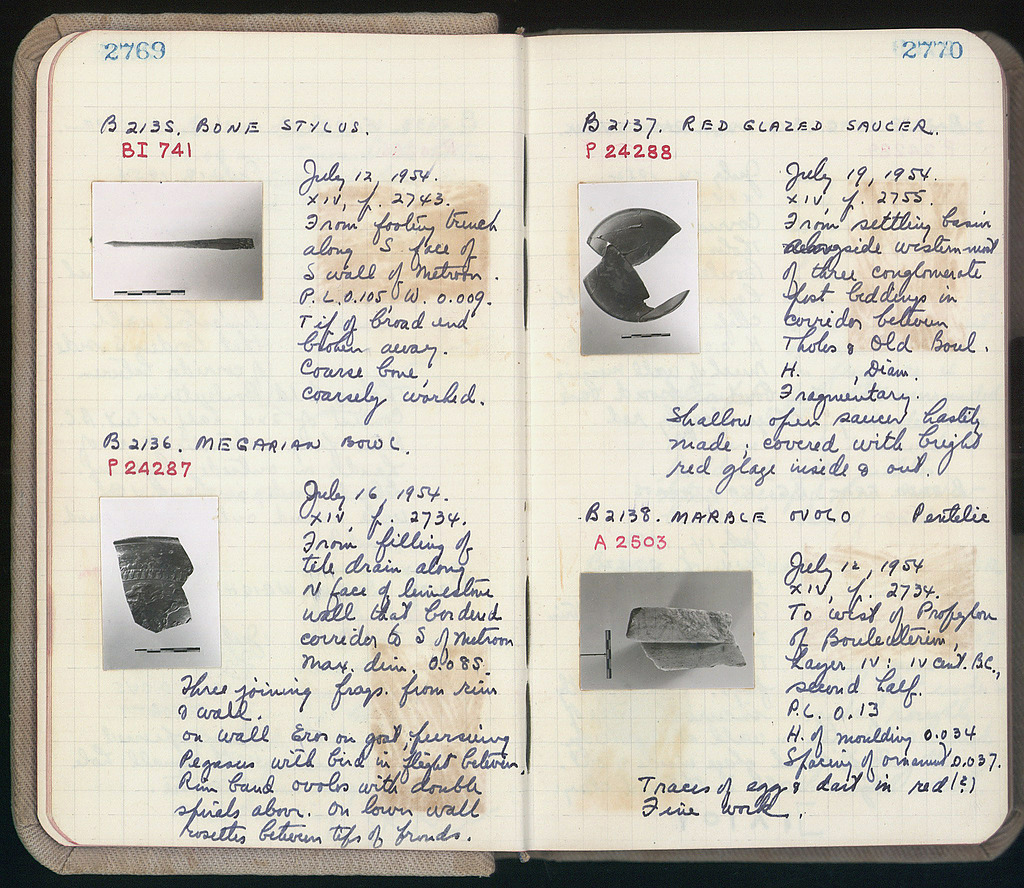 2769
B 2135. BONE STYLUS.
BI 741
July 12, 1954.
XIV, p. 2743.
From footing trench
along S face of
S wall of Metroon.
P.L. 0.105 W. 0.009.
Tip of broad end
broken away.
Coarse bone,
coarsely worked.
B 2136. MEGARIAN BOWL.
P 24287
July 16, 1954.
XIV, p. 2734.
From filling of
tile drain along
N face of limestone
wall that bordered
corridor to S of Metroon
Max. dim. 0.085.
Three joining frags. from rim
& wall.
On wall Eros on goat, pursuing
Pegasus with bird in flight between.
Rim band ovolos with double
spirals above. On lower wall
rosettes between tips of fronds.
2770
B 2137. RED GLAZED SAUCER.
P 24288
July 19, 1954.
XIV, p. 2755.
From settling basin
alongside westernmost
of three conglomerate
post beddings in
corridor between
Tholos & Old Boul.
H. , Diam.
Fragmentary.
Shallow open saucer hastily
made; covered with bright
red glaze inside & out.
B 2138. MARBLE OVOLO Pentelic
A 2503
July 12, 1954
XIV, p. 2734.
To west of Propylon
of Bouleuterion,
Layer IV: IV cent. B.C.,
second half.
P.L. 0.13
H. of moulding 0.034
Spacing of ornament 0.037.
Traces of egg & dart in red (?)
Fine work.